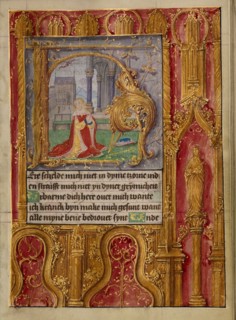 Ere schelde mich niet in dyme tzorne ind
en straiffe mich niet yn dyner grymicheit
Erbarme dich here ouer mich wante
ich kranck byn make mich gesunt want
alle myne bene bedrouet synt Ende